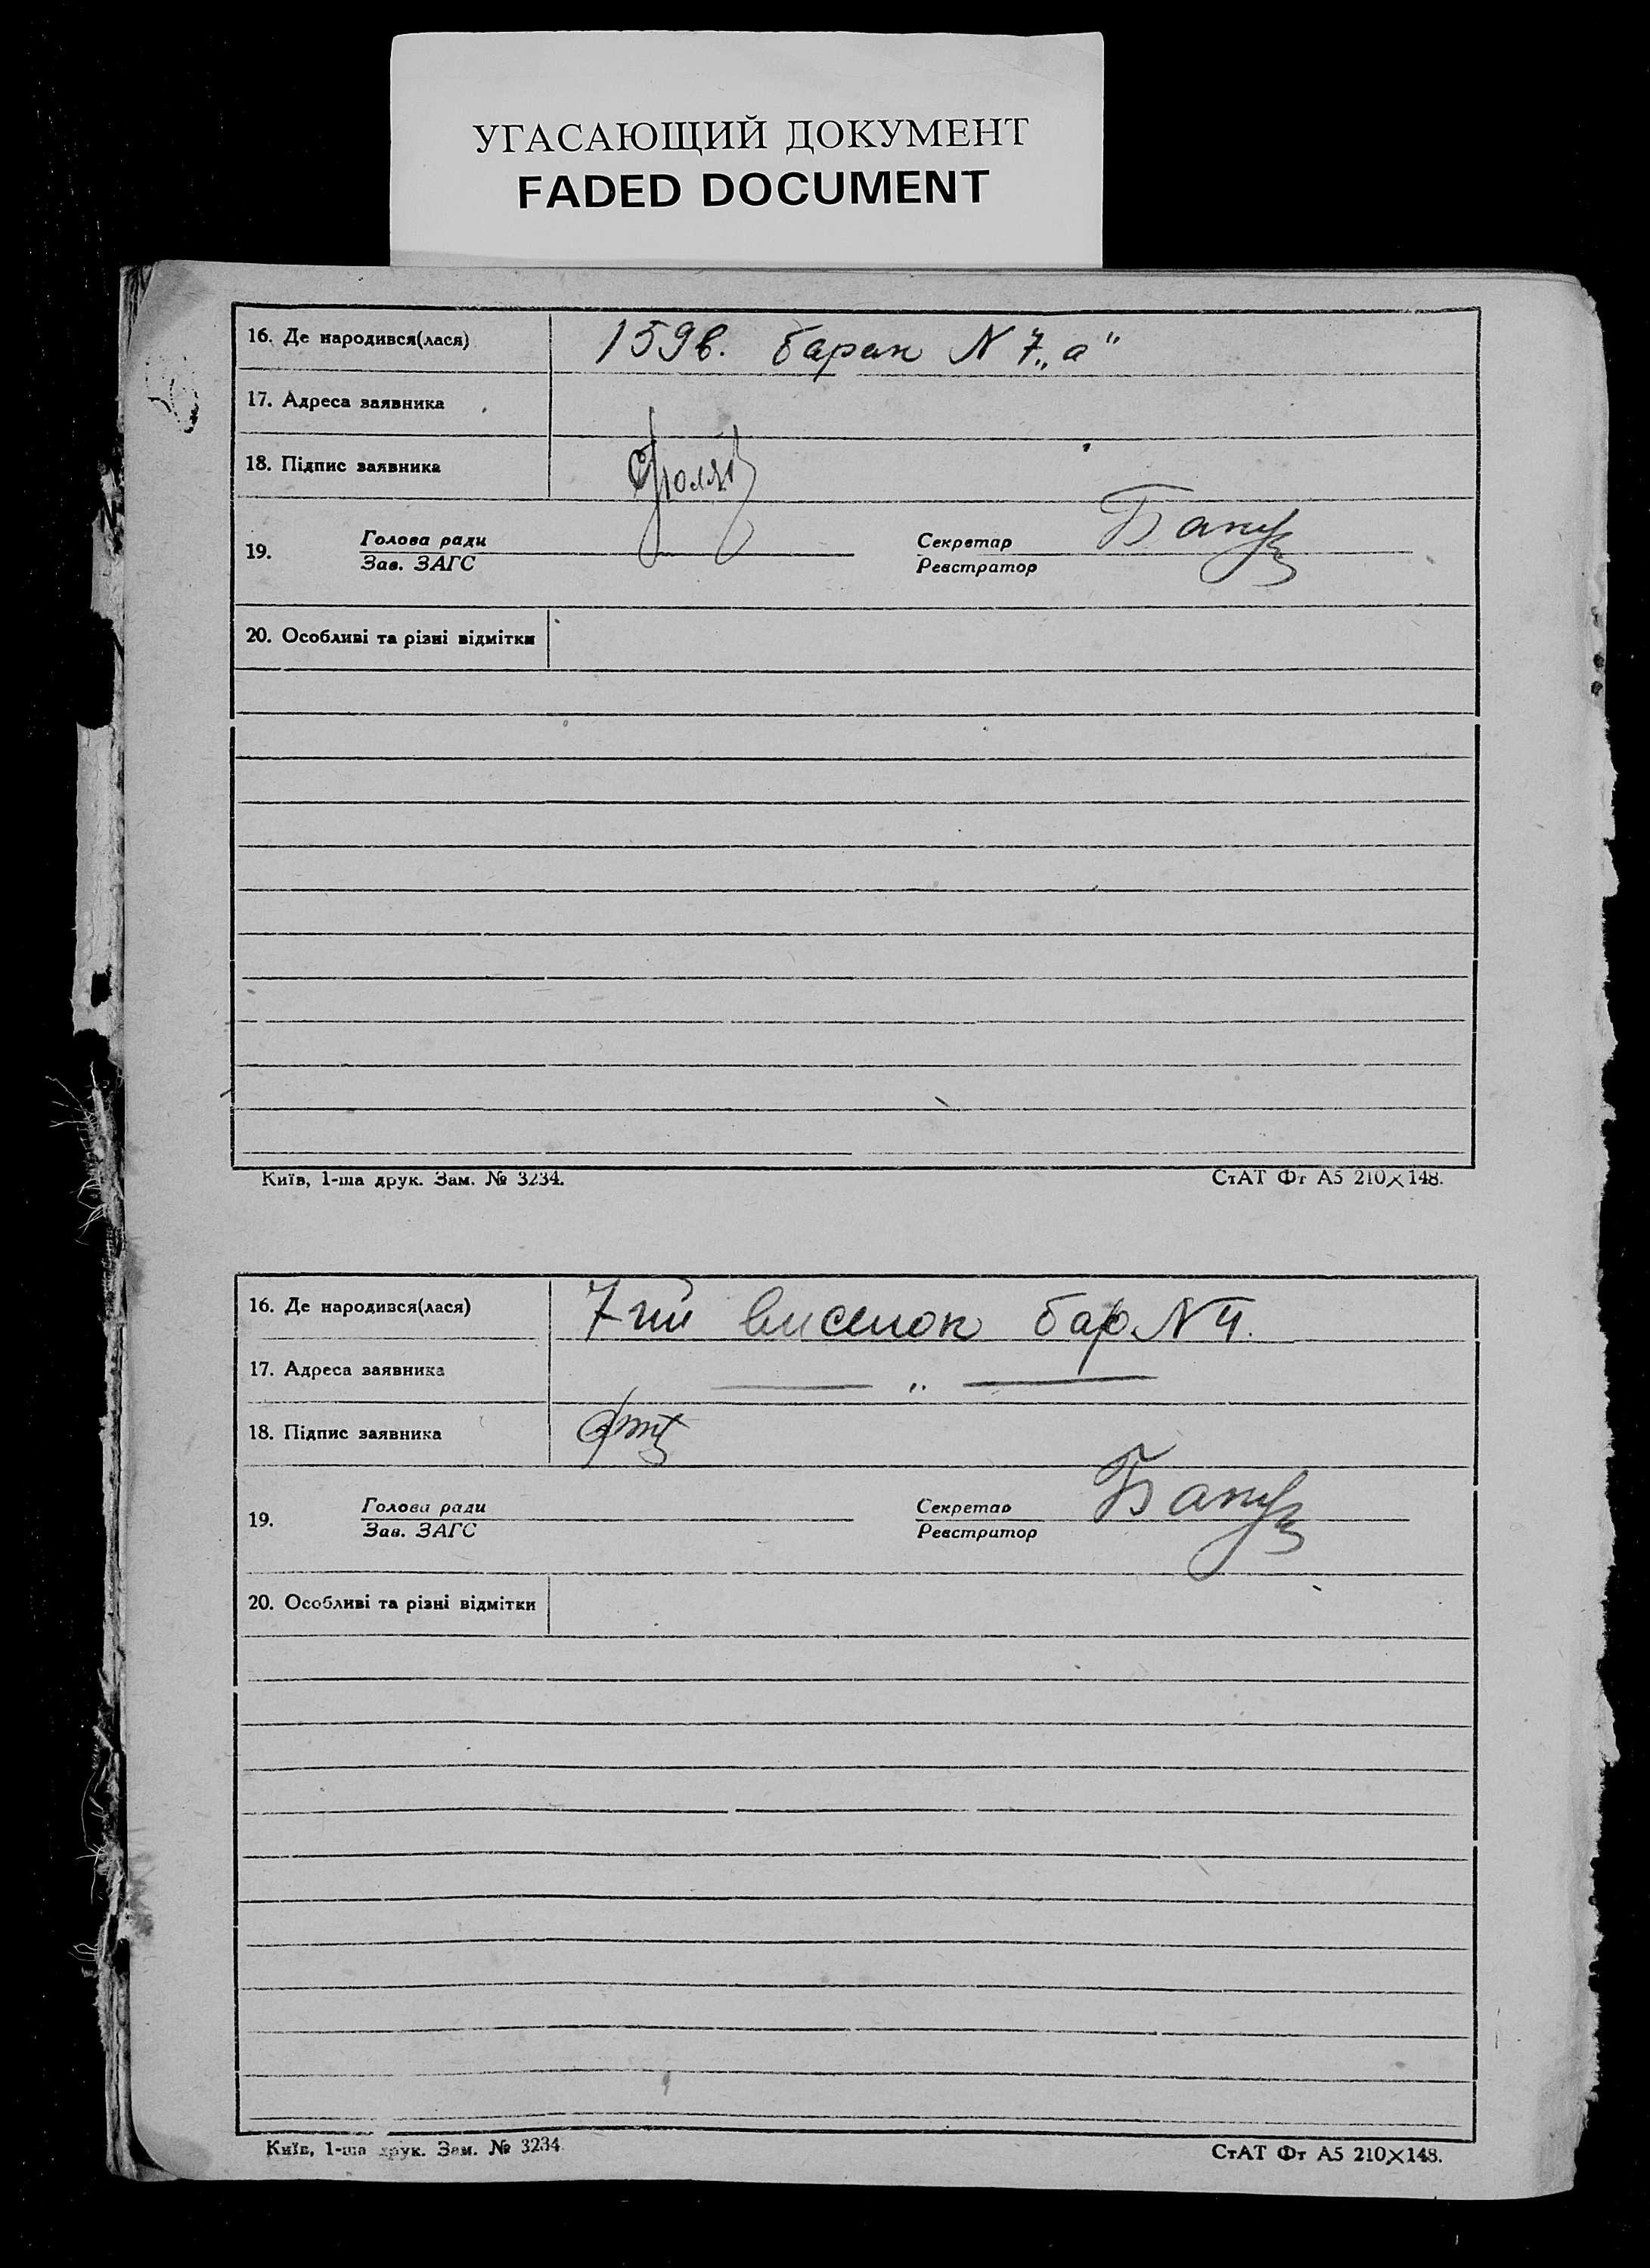 УГАСАЮЩИЙ ДОКУМЕНТ
FADED DOCUMENT
16. Де народився(лася) 159 в. барак N 7 „а"
17. Адреса заявника
18. Підпис заявника
19. Голова ради Секретар
Зав. ЗАГС Реєстратор
20. Особливі та різні відмітки
Київ, 1-ша друк. Зам. № 3234. СтАТ Фт А5 210×148.
16. Де народився(лася) 7-ий виселок бар. N 4.
17. Адреса заявника — „ —
18. Підпис заявника
19. Голова ради Секретар
Зав. ЗАГС Реєстратор
20. Особливі та різні відмітки
Київ, 1-ша друк. Зам. № 3234 СтАТ Фт А5 210×148.